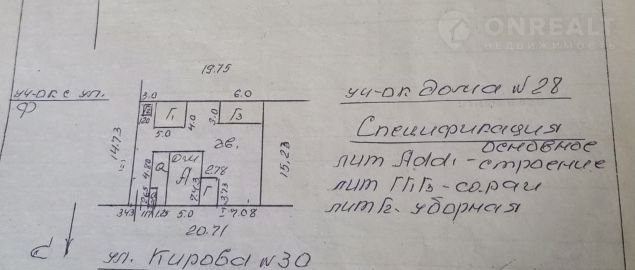 ONREALT
НЕДВИЖИМОСТЬ
19.75
уч-ок с ул.
3.0
6.0
уч-ок дома №28
Г₁
3.0
Г₃
5.0
4.0
Спецификация
14.73
дв.
15.23
основное
лит Аааа₁ - строение
4.80
а
А
2.78
Г
3.73
лит ГГ₁Г₃ - сараи
лит Г₂ - уборная
3.43
5.0
17.08
20.71
ул. Кирова №30